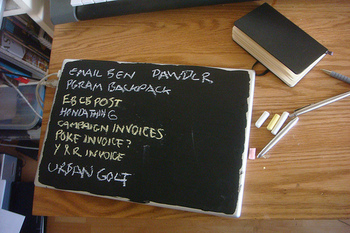 EMAIL SEN DAWDLR
PGRAM BACKPACK
EGCG POST
HONDATHING
CAMPAIGN INVOICES
POKE INVOICE?
Y&R INVOICE
URBAN GOLF